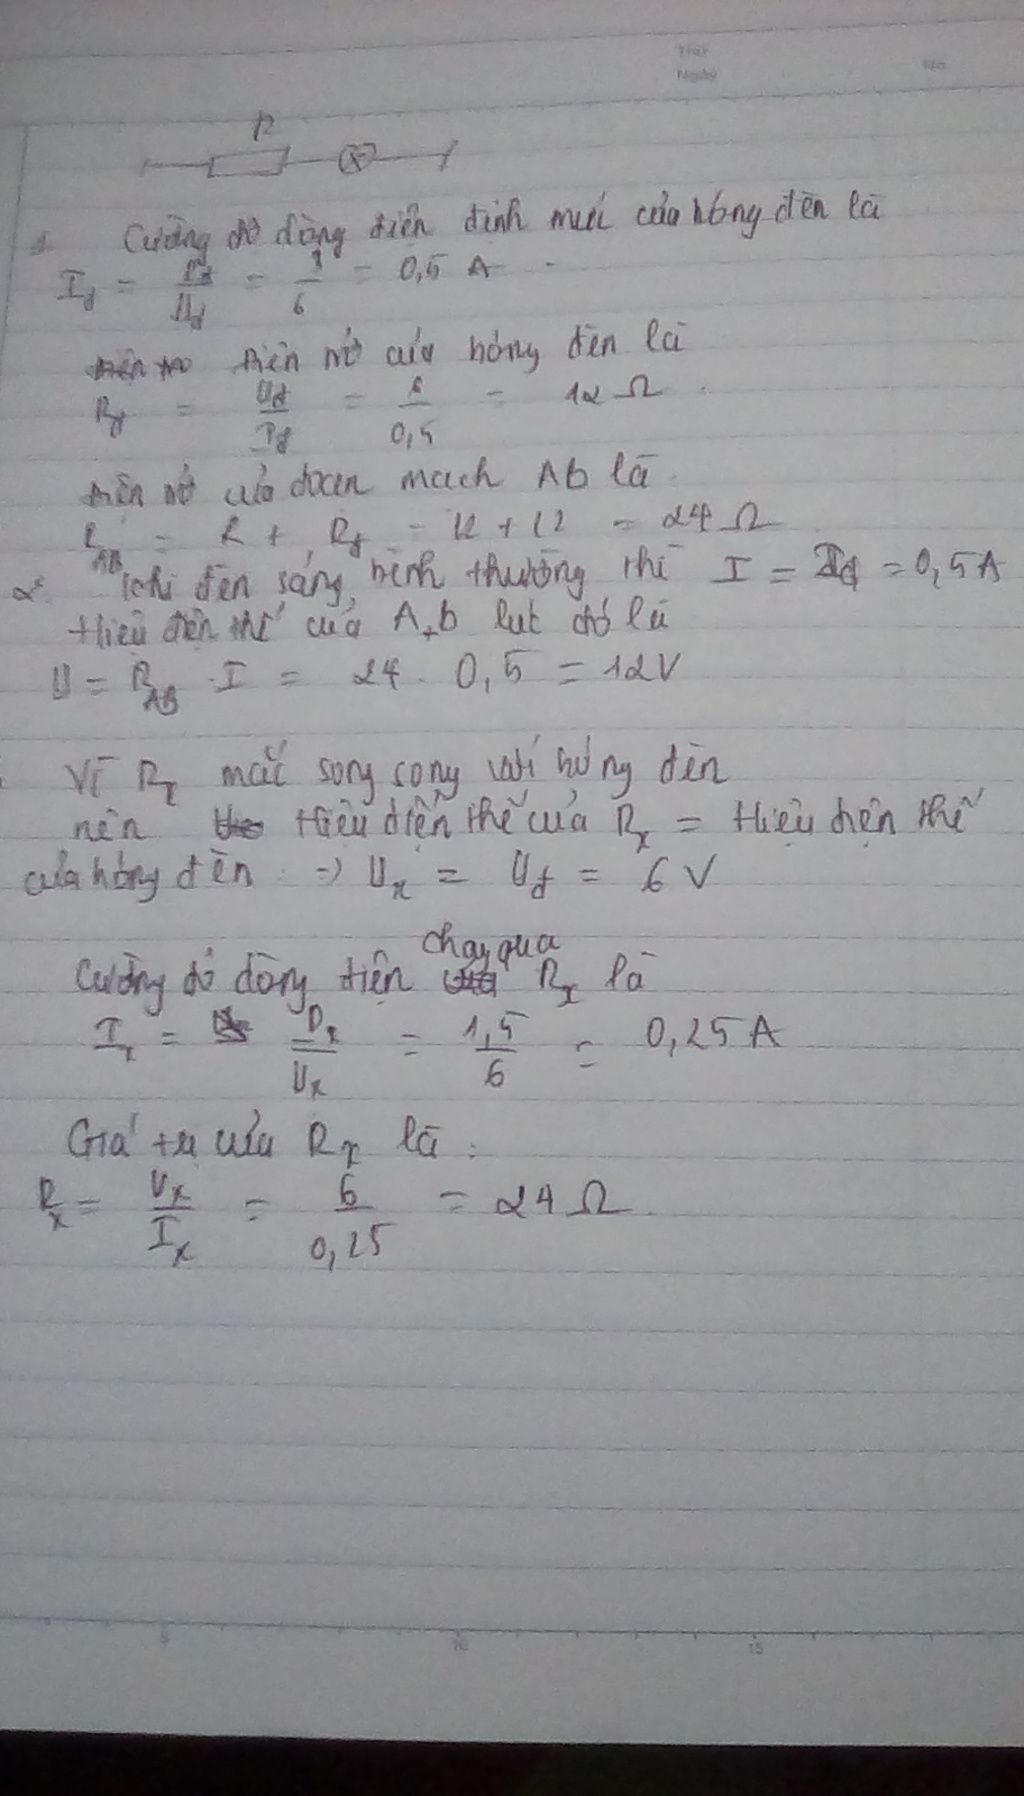 Thứ
Ngày
R
1. Cường độ dòng điện định mức của bóng đèn là
I_đ = P_đ/U_đ = 3/6 = 0,5 A
Điện trở của bóng đèn là
R_đ = U_đ/I_đ = 6/0,5 = 12 Ω
Điện trở của đoạn mạch AB là
R_AB = R + R_đ = 12 + 12 = 24 Ω
2. Khi đèn sáng bình thường thì I = I_đ = 0,5A
Hiệu điện thế của A,b lúc đó là
U = R_AB . I = 24 . 0,5 = 12V
Vì R_x mắc song song với bóng đèn
nên Hiệu điện thế của R_x = Hiệu điện thế
của bóng đèn => U_x = U_đ = 6 V
Cường độ dòng điện chạy qua R_x là
I_x = P_x/U_x = 1,5/6 = 0,25 A
Giá trị của R_x là :
R_x = U_x/I_x = 6/0,25 = 24 Ω
5 10 15